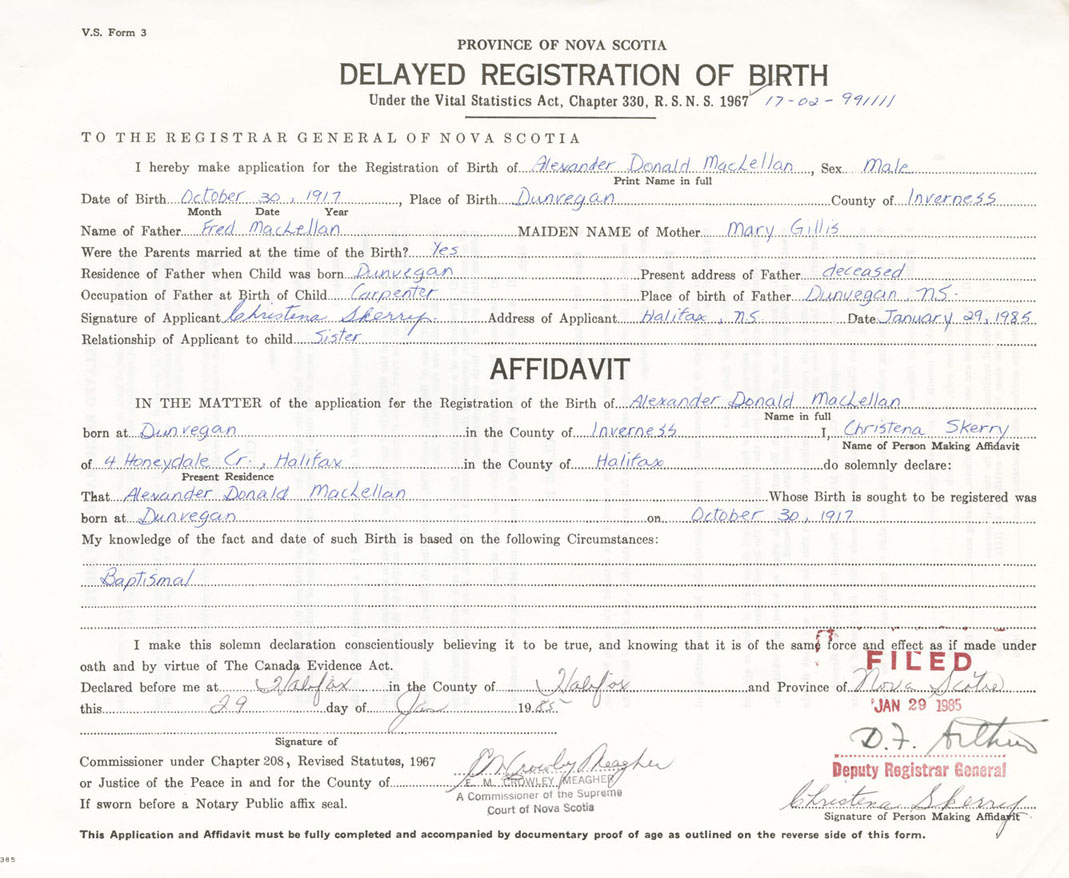 V.S. Form 3
PROVINCE OF NOVA SCOTIA
DELAYED REGISTRATION OF BIRTH
Under the Vital Statistics Act, Chapter 330, R.S.N.S. 1967 17-02-991111
TO THE REGISTRAR GENERAL OF NOVA SCOTIA
I hereby make application for the Registration of Birth of Alexander Donald MacLellan, Sex Male
Print Name in full
Date of Birth October 30, 1917, Place of Birth Dunvegan County of Inverness
Month Date Year
Name of Father Fred MacLellan MAIDEN NAME of Mother Mary Gillis
Were the Parents married at the time of the Birth? Yes
Residence of Father when Child was born Dunvegan Present address of Father deceased
Occupation of Father at Birth of Child Carpenter Place of birth of Father Dunvegan N.S.
Signature of Applicant Christena Skerry Address of Applicant Halifax, N.S. Date January 29, 1985
Relationship of Applicant to child Sister
AFFIDAVIT
IN THE MATTER of the application for the Registration of the Birth of Alexander Donald MacLellan
Name in full
born at Dunvegan in the County of Inverness I, Christena Skerry
Name of Person Making Affidavit
of 4 Honeydale Cr., Halifax in the County of Halifax do solemnly declare:
Present Residence
That Alexander Donald MacLellan Whose Birth is sought to be registered was
born at Dunvegan on October 30, 1917
My knowledge of the fact and date of such Birth is based on the following Circumstances:
Baptismal
I make this solemn declaration conscientiously believing it to be true, and knowing that it is of the same force and effect as if made under
oath and by virtue of The Canada Evidence Act.
FILED
Declared before me at Halifax in the County of Halifax and Province of Nova Scotia
this 29 day of Jan 1985
JAN 29 1985
Signature of
D.F. Arthur
Commissioner under Chapter 208, Revised Statutes, 1967 EM Crowley Meagher
Deputy Registrar General
or Justice of the Peace in and for the County of E. M. CROWLEY MEAGHER
A Commissioner of the Supreme
Court of Nova Scotia
If sworn before a Notary Public affix seal.
Christena Skerry
Signature of Person Making Affidavit
This Application and Affidavit must be fully completed and accompanied by documentary proof of age as outlined on the reverse side of this form.
385